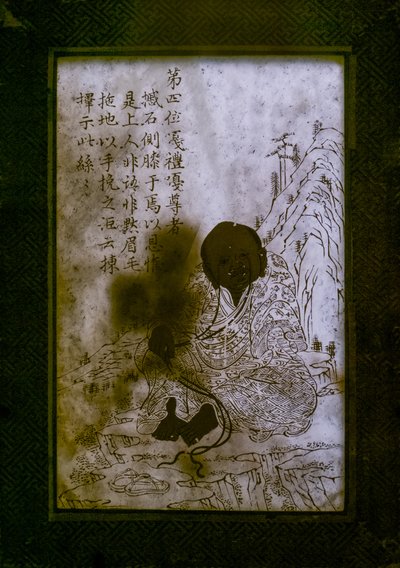 第四位嘎禮嘎尊者
據石側膝于焉以息惟
是上人非語非默眉毛
拖地以手挽之設云揀
擇示此絲〻